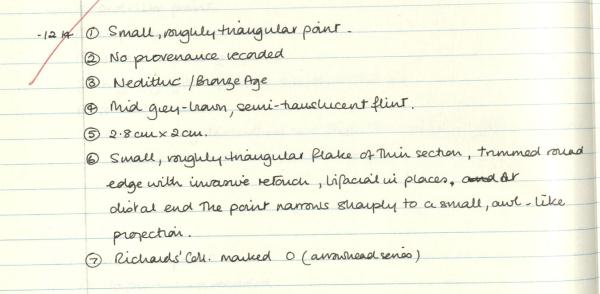 -1214 ① Small, roughly triangular point.
② No provenance recorded
③ Neolithic / Bronze Age
④ Mid grey-brown, semi-translucent flint.
⑤ 2.8cm x 2cm.
⑥ Small, roughly triangular flake of thin section, trimmed round
edge with invasive retouch, bifacial in places, and At
distal end the point narrows sharply to a small, awl-like
projection.
⑦ Richards' Coll. marked O (arrowhead series)